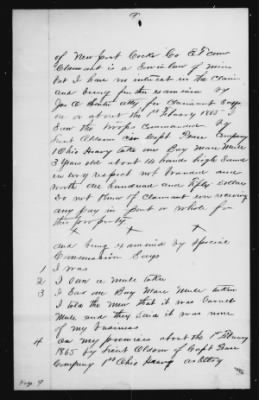 of Newport Cocke Co E Tenn
Claimant is a Son in law of mine
but I have no interest in the claim
and being further examined by
Jas A atty for Claimant Says
on or about the 1st February 1865 I
Saw the troops Commanded by
Lieut Oldsom Capt Company
1 Ohio Heavy take one Bay Mare Mule
3 years old about 14 hands high Sound
in every respect not branded and
worth one hundred and fifty dollars
Do not know of Claimant ever receiving
any pay in part or whole for
the property
x x x
and being examined by Special
Commission Says
1 I was
2 I Saw a mule taken
3 I Saw one Bay Mare Mule taken
I told the men that it was
Mule and they Said it was none
of my business
4 On my premises about the 1st February
1865 by Lieut Oldsom of Capt
Company 1st Ohio Heavy artillery
Page 9